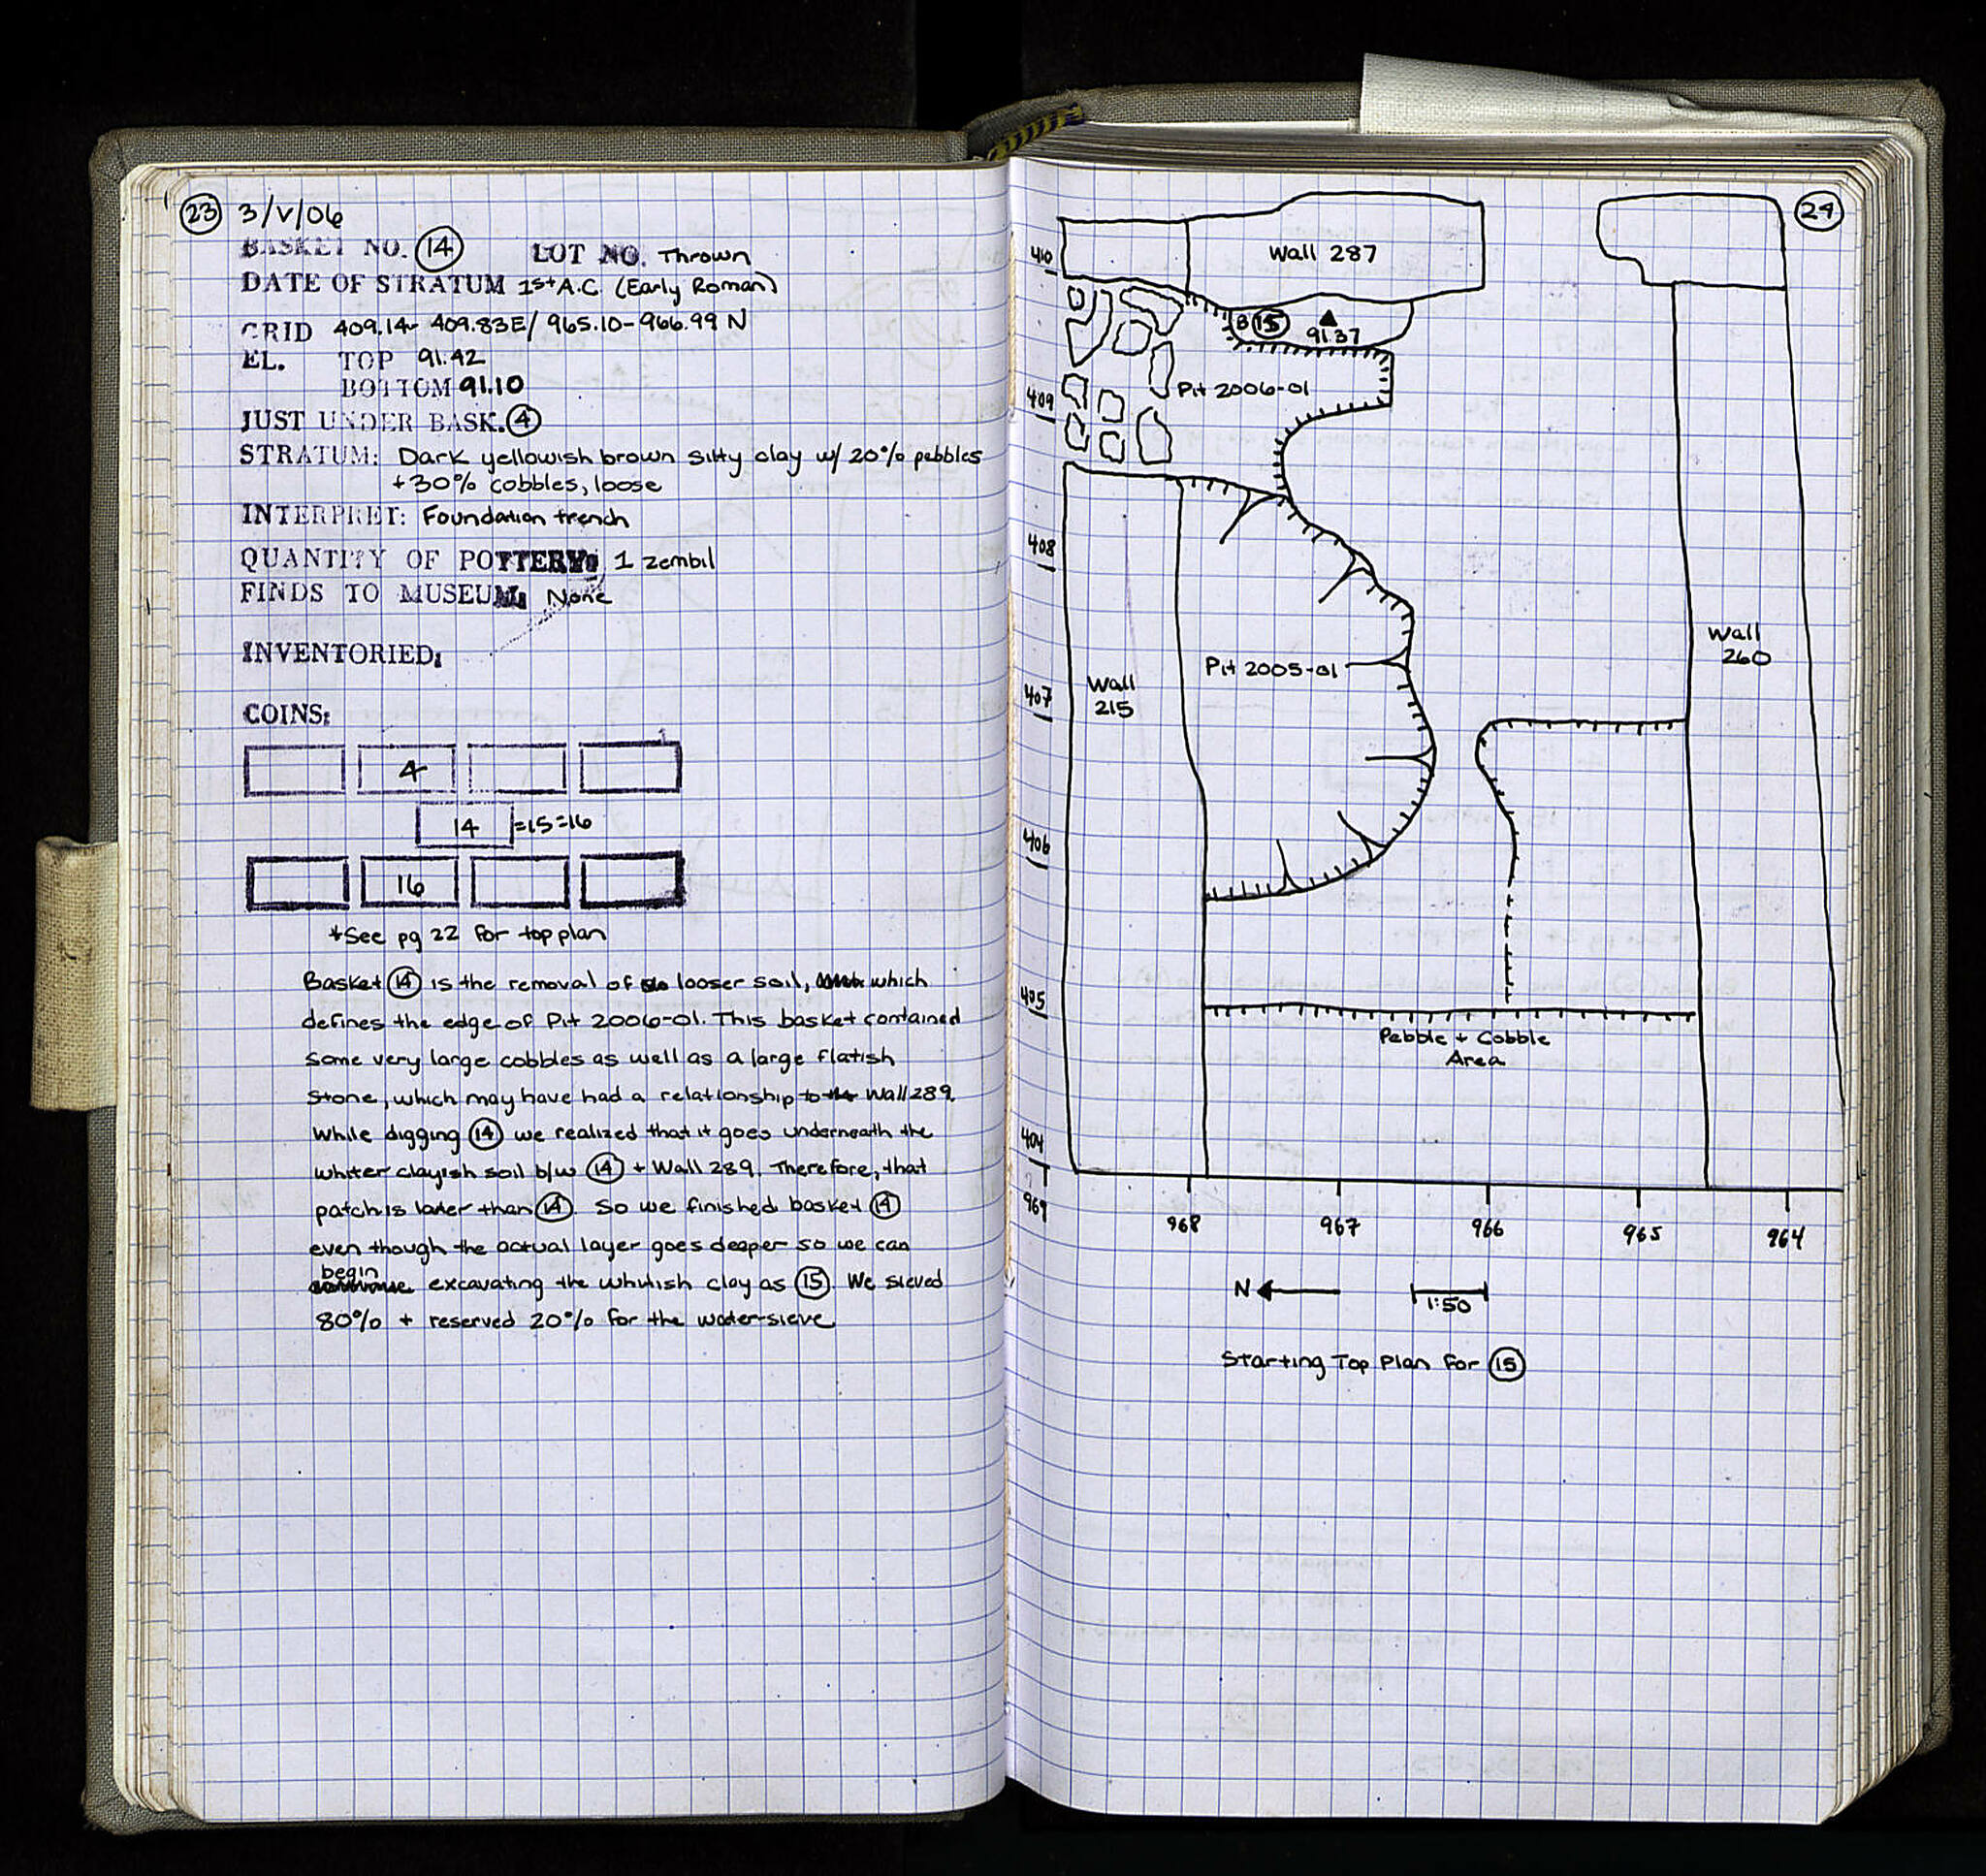 23 3/V/06
BASKET NO. 14 LOT NO. Thrown
DATE OF STRATUM 1st A.C. (Early Roman)
GRID 409.14-409.83E/965.10-966.99 N
EL. TOP 91.42
BOTTOM 91.10
JUST UNDER BASK. 4
STRATUM: Dark yellowish brown silty clay w/ 20% pebbles
+30% cobbles, loose
INTERPRET: Foundation trench
QUANTITY OF POTTERY: 1 zembil
FINDS TO MUSEUM: None
INVENTORIED:
COINS:
4
14 =15=16
16
*See pg 22 for top plan
Basket 14 is the removal of looser soil, which
defines the edge of Pit 2006-01. This basket contained
some very large cobbles as well as a large flatish
stone, which may have had a relationship to Wall 289.
While digging 14 we realized that it goes underneath the
whiter clayish soil b/w 14 + Wall 289. Therefore, that
patch is later than 14. So we finished basket 14
even though the actual layer goes deeper so we can
begin
excavating the whitish clay as 15. We sieved
80% + reserved 20% for the water-sieve
24
410
Wall 287
B 15
91.37
409
Pit 2006-01
408
Wall
260
Pit 2005-01
407
Wall
215
406
405
Pebble + Cobble
Area
404
969
968
967
966
965
964
N
1:50
Starting Top Plan for 15